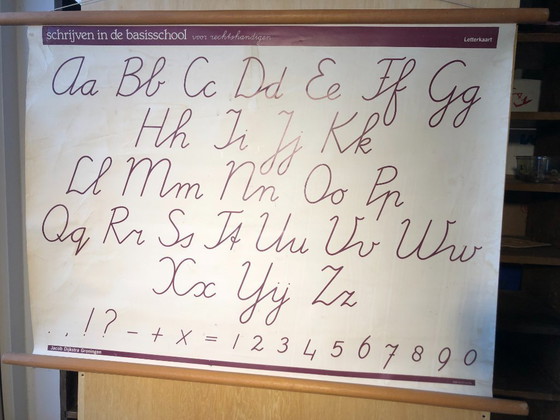 schrijven in de basisschool voor rechtshandigen Letterkaart
Aa Bb Cc Dd Ee Ff Gg
Hh Ii Jj Kk
Ll Mm Nn Oo Pp
Qq Rr Ss Tt Uu Vv Ww
Xx Yy Zz
. , ! ? - + x = 1 2 3 4 5 6 7 8 9 0
Jacob Dijkstra Groningen